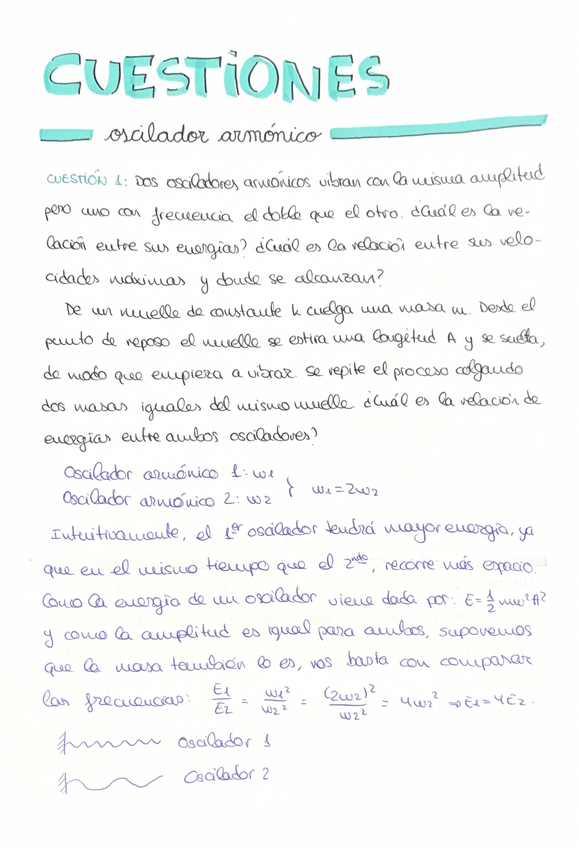 CUESTIONES
oscilador armónico
CUESTIÓN 1: Dos osciladores armónicos vibran con la misma amplitud
pero uno con frecuencia el doble que el otro. ¿Cuál es la re-
lación entre sus energías? ¿Cuál es la relación entre sus velo-
cidades máximas y donde se alcanzan?
De un muelle de constante k cuelga una masa m. Desde el
punto de reposo el muelle se estira una longitud A y se suelta,
de modo que empieza a vibrar. Se repite el proceso colgando
dos masas iguales del mismo muelle ¿Cuál es la relación de
energías entre ambos osciladores?
Oscilador armónico 1: w1
Oscilador armónico 2: w2 } w1=2w2
Intuitivamente, el 1er oscilador tendrá mayor energía, ya
que en el mismo tiempo que el 2ndo, recorre más espacio.
Como la energía de un oscilador viene dada por: E=1/2 mw²A²
y como la amplitud es igual para ambos, suponemos
que la masa también lo es, nos basta con comparar
las frecuencias: E1/E2 = w1²/w2² = (2w2)²/w2² = 4w2² ⇒ E1=4E2.
Oscilador 1
Oscilador 2